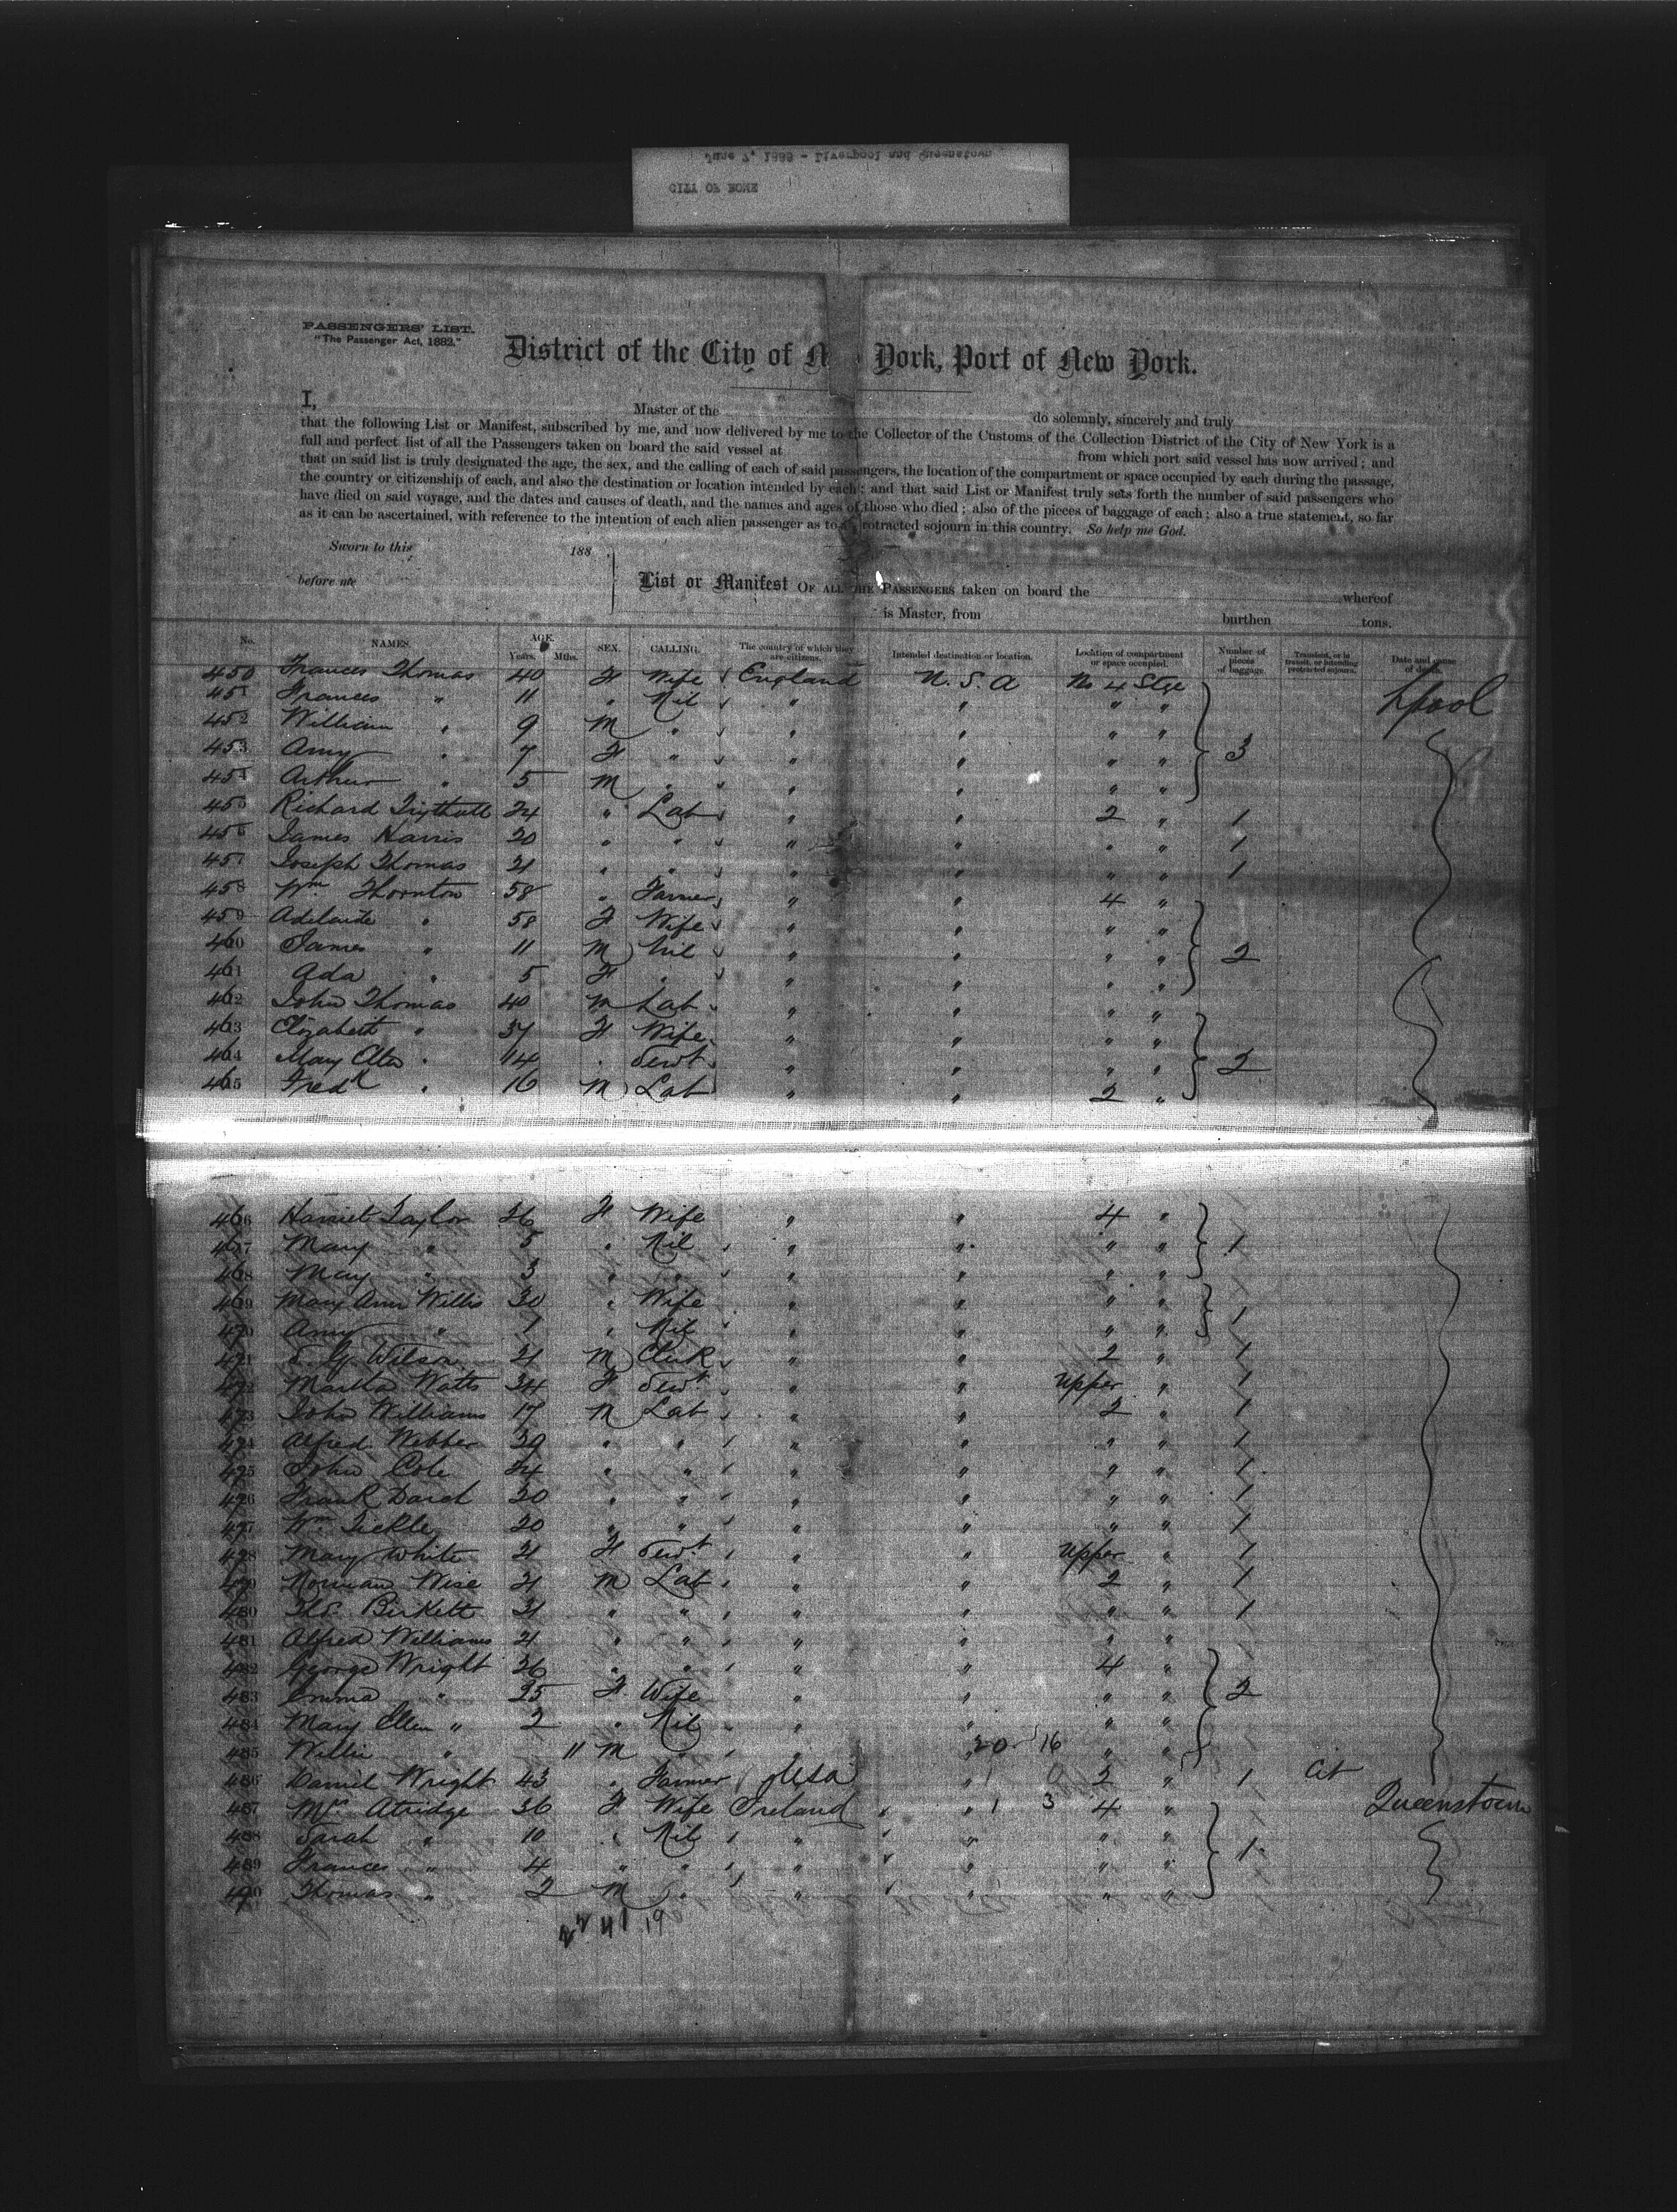 June 7, 1888 - Liverpool and Queenstown
CITY OF ROME
PASSENGERS' LIST.
"The Passenger Act, 1882."
District of the City of N York, Port of New York.
I, Master of the do solemnly, sincerely and truly
that the following List or Manifest, subscribed by me, and now delivered by me to the Collector of the Customs of the Collection District of the City of New York is a
full and perfect list of all the Passengers taken on board the said vessel at from which port said vessel has now arrived; and
that on said list is truly designated the age, the sex, and the calling of each of said passengers, the location of the compartment or space occupied by each during the passage,
the country or citizenship of each, and also the destination or location intended by each; and that said List or Manifest truly sets forth the number of said passengers who
have died on said voyage, and the dates and causes of death, and the names and ages of those who died; also of the pieces of baggage of each; also a true statement, so far
as it can be ascertained, with reference to the intention of each alien passenger as to a protracted sojourn in this country. So help me God.
Sworn to this 188
before me
List or Manifest OF ALL THE PASSENGERS taken on board the whereof
is Master, from burthen tons.
No. NAMES. AGE. Years. Mths. SEX. CALLING. The country of which they are citizens. Intended destination or location. Location of compartment or space occupied. Number of pieces of baggage. Transient, or in transit, or intending protracted sojourn. Date and cause of death.
450 Frances Thomas 40 F Wife England U.S.A No 4 Stge Lpool
451 Frances " 11 " Nil " " " "
452 William " 9 M " " " " "
453 Amy " 7 F " " " " " 3
454 Arthur " 5 M " " " " "
455 Richard 24 " Lab " " 2 " 1
456 James Harris 20 " " " " " " 1
457 Joseph Thomas 21 " " " " " " 1
458 Wm Thornton 58 " Farmer " " 4 "
459 Adelaide " 58 F Wife " " " "
460 James " 11 M Nil " " " " 2
461 Ada " 5 F " " " " "
462 John Thomas 40 M Lab " " " "
463 Elizabeth " 37 F Wife " " " "
464 Mary Ellen " 14 " Servt " " " " 2
465 Fredk " 16 M Lab " " 2 "
466 Harriet Taylor 26 F Wife " " 4 "
467 Mary " 5 " Nil " " " " 1
468 May " 3 " " " " " "
469 Mary Ann Willis 30 " Wife " " " " 1
470 Amy " 1 " Nil " " " "
471 G. Wilson 21 M Clerk " " 2 " 1
472 Martha Watts 34 F Servt " " Upper " 1
473 John Williams 17 M Lab " " 2 " 1
474 Alfred Webber 29 " " " " " " 1
475 John Cole 24 " " " " " " 1
476 Frank Darch 20 " " " " " " 1
477 Wm Tickle 20 " " " " " " 1
478 Mary White 21 F Servt " " Upper " 1
479 Norman Wise 21 M Lab " " 2 " 1
480 Thos Birkett 21 " " " " " " 1
481 Alfred Williams 21 " " " " " "
482 George Wright 26 " " " " 4 "
483 Emma " 25 F Wife " " " " 2
484 Mary Ellen " 2 " Nil " " " "
485 Willie " 11 M " " " 20 16 " "
486 Daniel Wright 43 " Farmer USA " 1 0 2 " 1 Cit
487 Mrs Atridge 36 F Wife Ireland " 1 3 4 " Queenstown
488 Sarah " 10 " Nil " " " " 1
489 Frances " 4 " " " " " "
490 Thomas " 2 M " " " " "
22 41 19